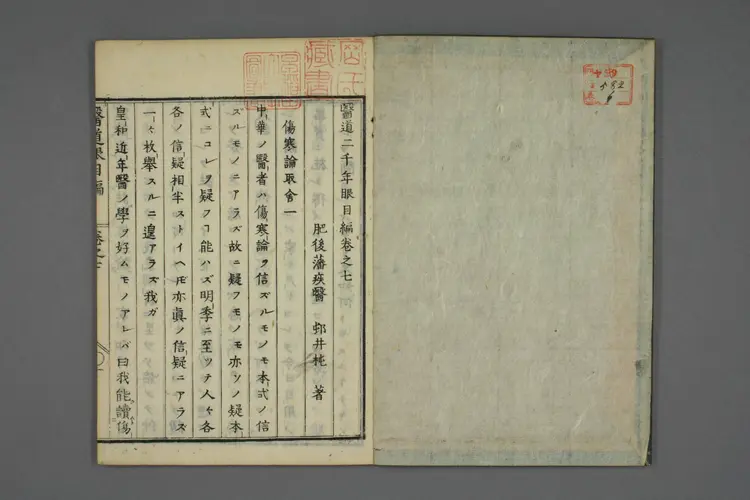 醫道二千年眼目編卷之七
肥後藩疾醫 邨井杶 著
傷寒論取舍一
中華ノ醫者ハ傷寒論ヲ信ズルモノモ本式ノ信
ズルモノニアラズ故ニ疑フモノモ亦ソノ疑本
式ニコレヲ疑フヿ能ハズ明季ニ至ツテ人々各
各ノ信疑相半ストイヘ𪜈亦眞ノ信疑ニアラズ
一々枚擧スルニ遑アラズ我ガ
皇和近年醫ノ學ヲ好ムモノアレバ曰我能讀傷
醫道眼目編 卷之七